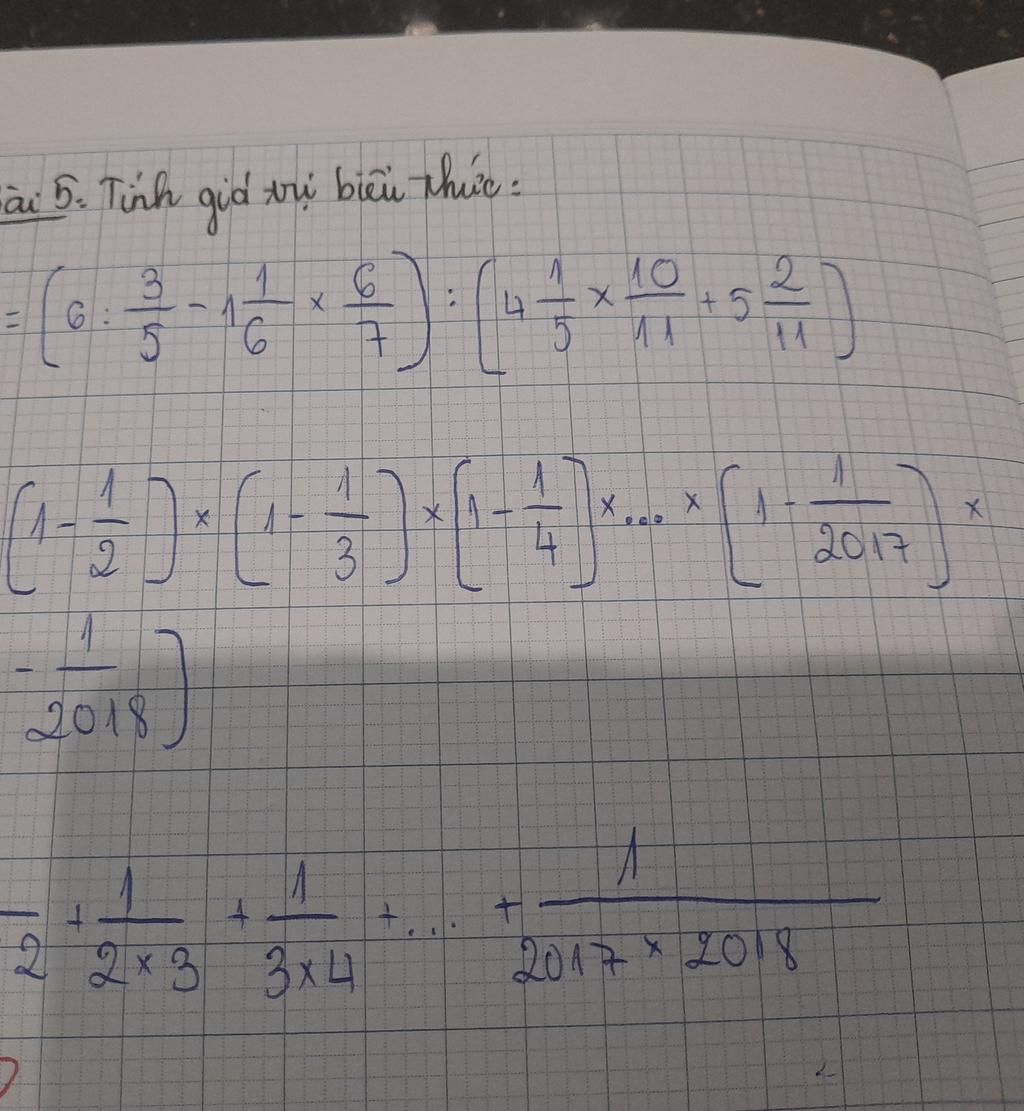 ài 5. Tính giá trị biểu thức:
= (6 : 3/5 - 1 1/6 × 6/7) : (4 1/5 × 10/11 + 5 2/11)
(1 - 1/2) × (1 - 1/3) × (1 - 1/4) × ... × (1 - 1/2017) ×
- 1/2018)
2 + 1/2×3 + 1/3×4 + ... + 1/2017×2018